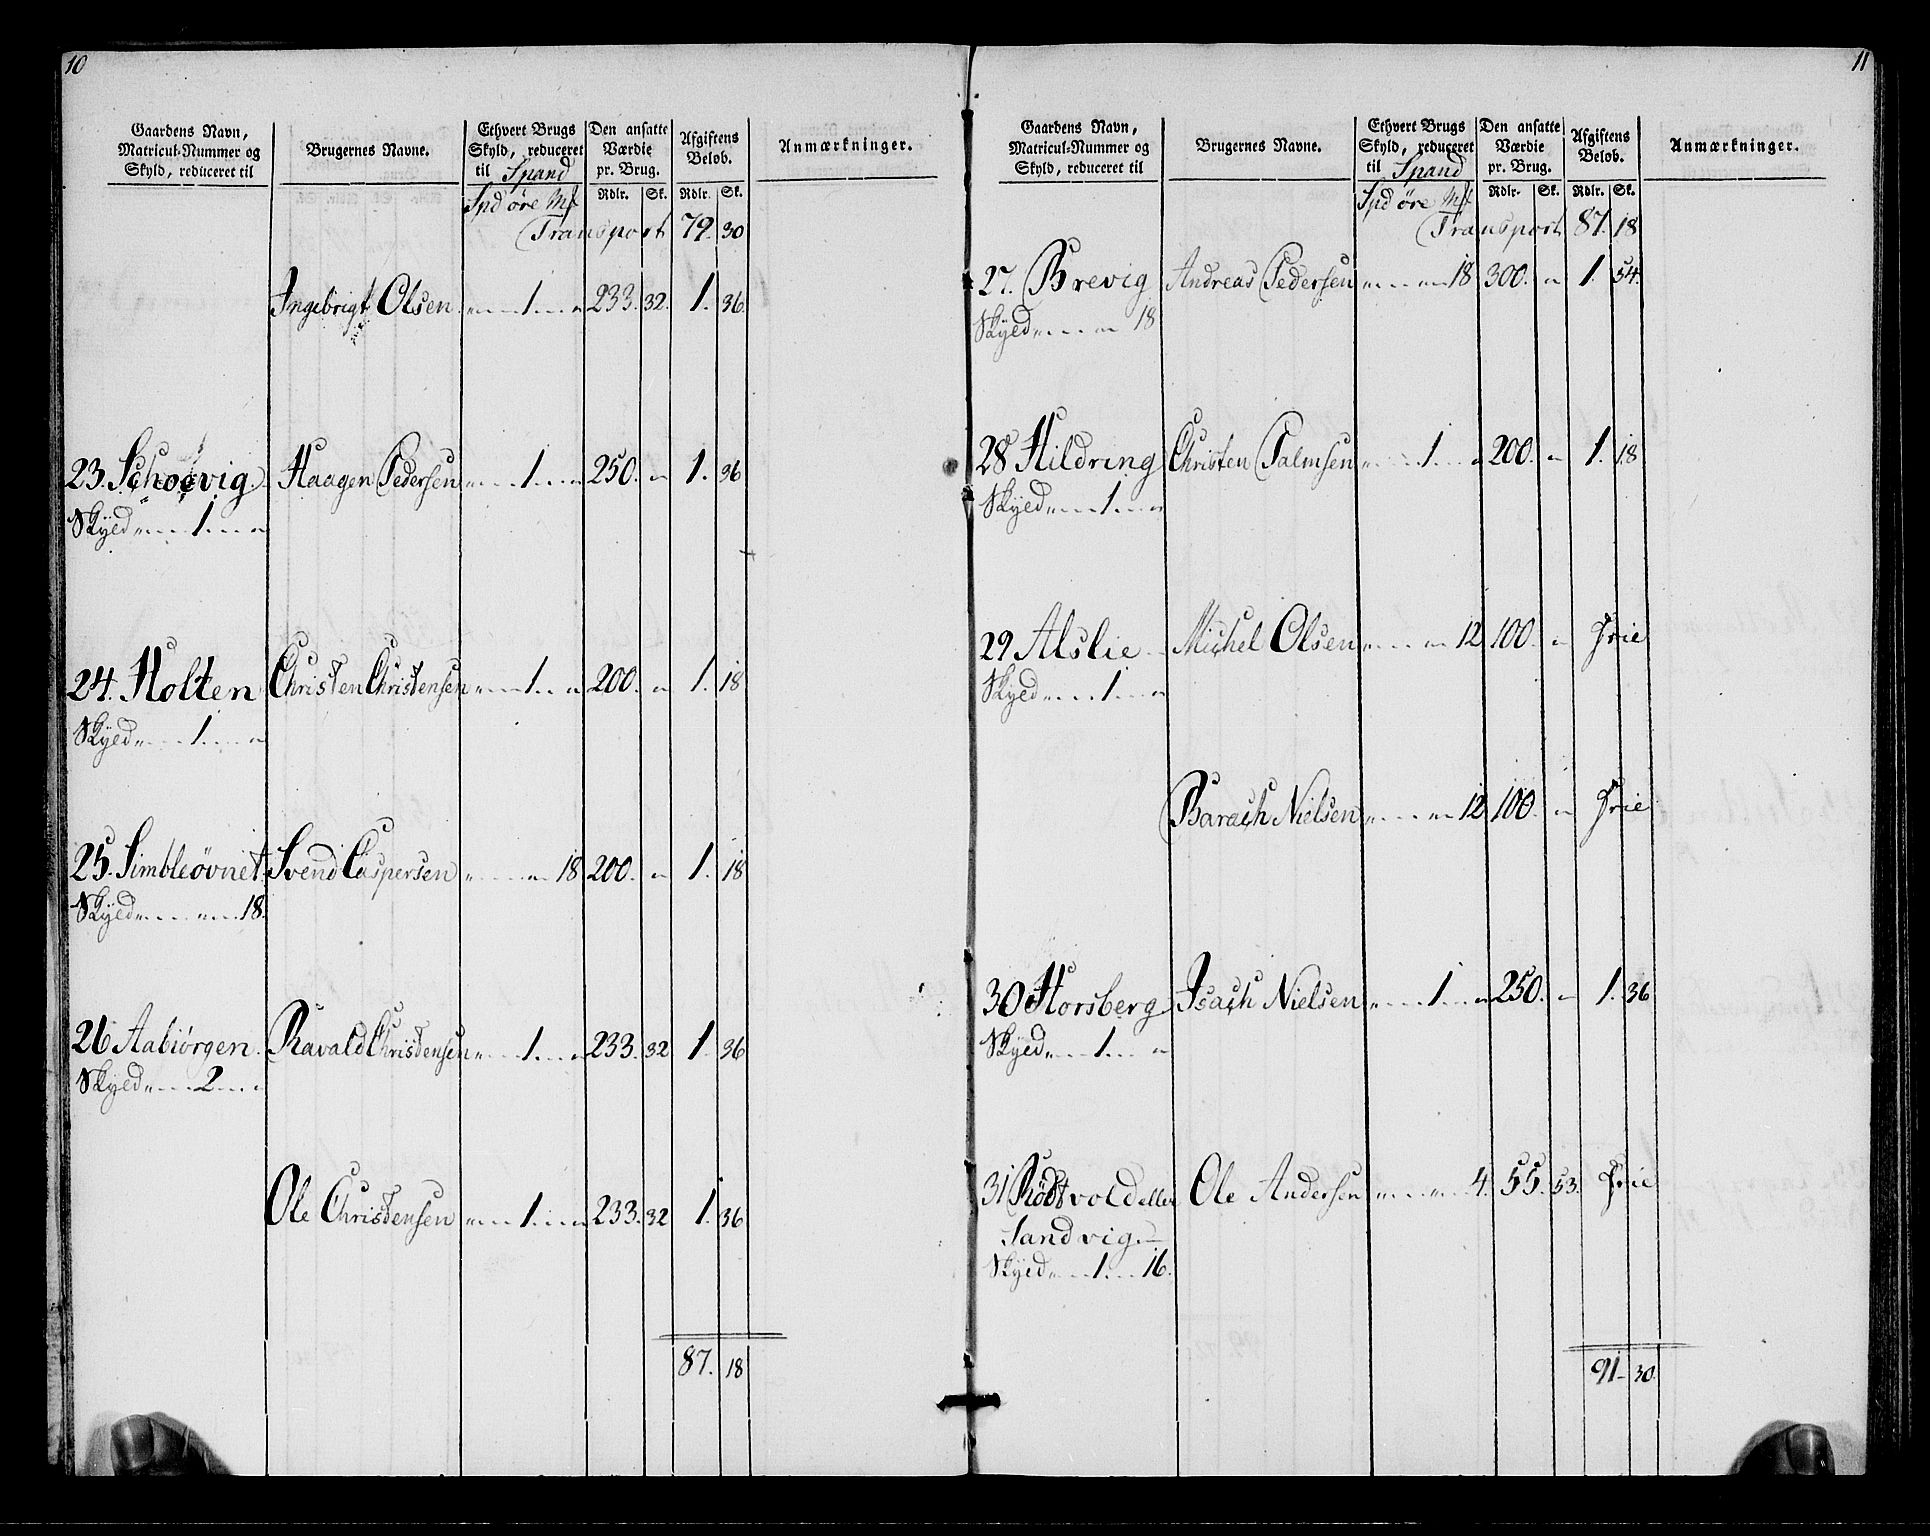 10
Gaardens Navn, Matricul-Nummer og Skyld, reduceret til
Brugernes Navne.
Ethvert Brugs Skyld, reduceret til Spand
Den ansatte Værdie pr. Brug.
Afgiftens Beløb.
Anmærkninger.
Spd øre Mk Rdlr. Sk. Rdlr. Sk.
Transport 79. 30
Ingebrigt Olsen „ 1. „ 233. 32. 1. 36.
23. Schoevig Haagen Pedersen „ 1. „ 250. „ 1. 36
Skyld „ 1. „
24. Holten Christen Christensen „ 1. „ 200. „ 1. 18
Skyld „ 1. „
25. Simbleøvnet Svend Caspersen „ „ 18 200. „ 1. 18
Skyld „ „ 18.
26 Aabiørgen Ravald Christensen „ 1. „ 233. 32 1. 36
Skyld „ 2. „
Ole Christensen „ 1. „ 233. 32 1. 36
87. 18
11
Gaardens Navn, Matricul-Nummer og Skyld, reduceret til
Brugernes Navne.
Ethvert Brugs Skyld, reduceret til Spand
Den ansatte Værdie pr. Brug.
Afgiftens Beløb.
Anmærkninger.
Spd øre Mk Rdlr. Sk. Rdlr. Sk.
Transport 87. 18
27. Brevig Andreas Pedersen „ „ 18 300. „ 1. 54.
Skyld „ „ 18
28 Hildring Christen Palmsen „ 1. „ 200. „ 1. 18
Skyld „ 1. „
29 Alslie Michel Olsen „ „ 12 100. „ Frie
Skyld „ 1. „
Barach Nielsen „ „ 12 100. „ Frie
30 Horsberg Isach Nielsen „ 1. „ 250. „ 1. 36
Skyld „ 1. „
31 Rødtvold eller Ole Andersen „ „ 4. 55. 53. Frie
Sandvig.
Skyld „ 1. 16.
91 30.